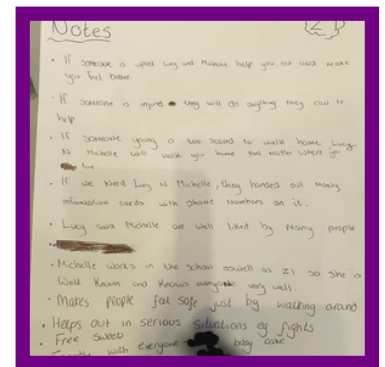 Notes
Z1
• If someone is upset Lucy and Michelle help you out and make
you feel better.
• If someone is injured they will do anything they can to
help
• If someone young is too scared to walk home, Lucy
N Michelle will walk you home no matter where you
live.
• If we need Lucy N Michelle, they handed out many
information cards with phone numbers on it.
• Lucy and Michelle are well liked by many people
• Michelle works in the school aswell as Z1 so she is
Well Known and Knows everyone very well.
• Makes people feel safe just by walking around
• Helps out in serious situations eg fights
• Free sweets
with everyone baby cake